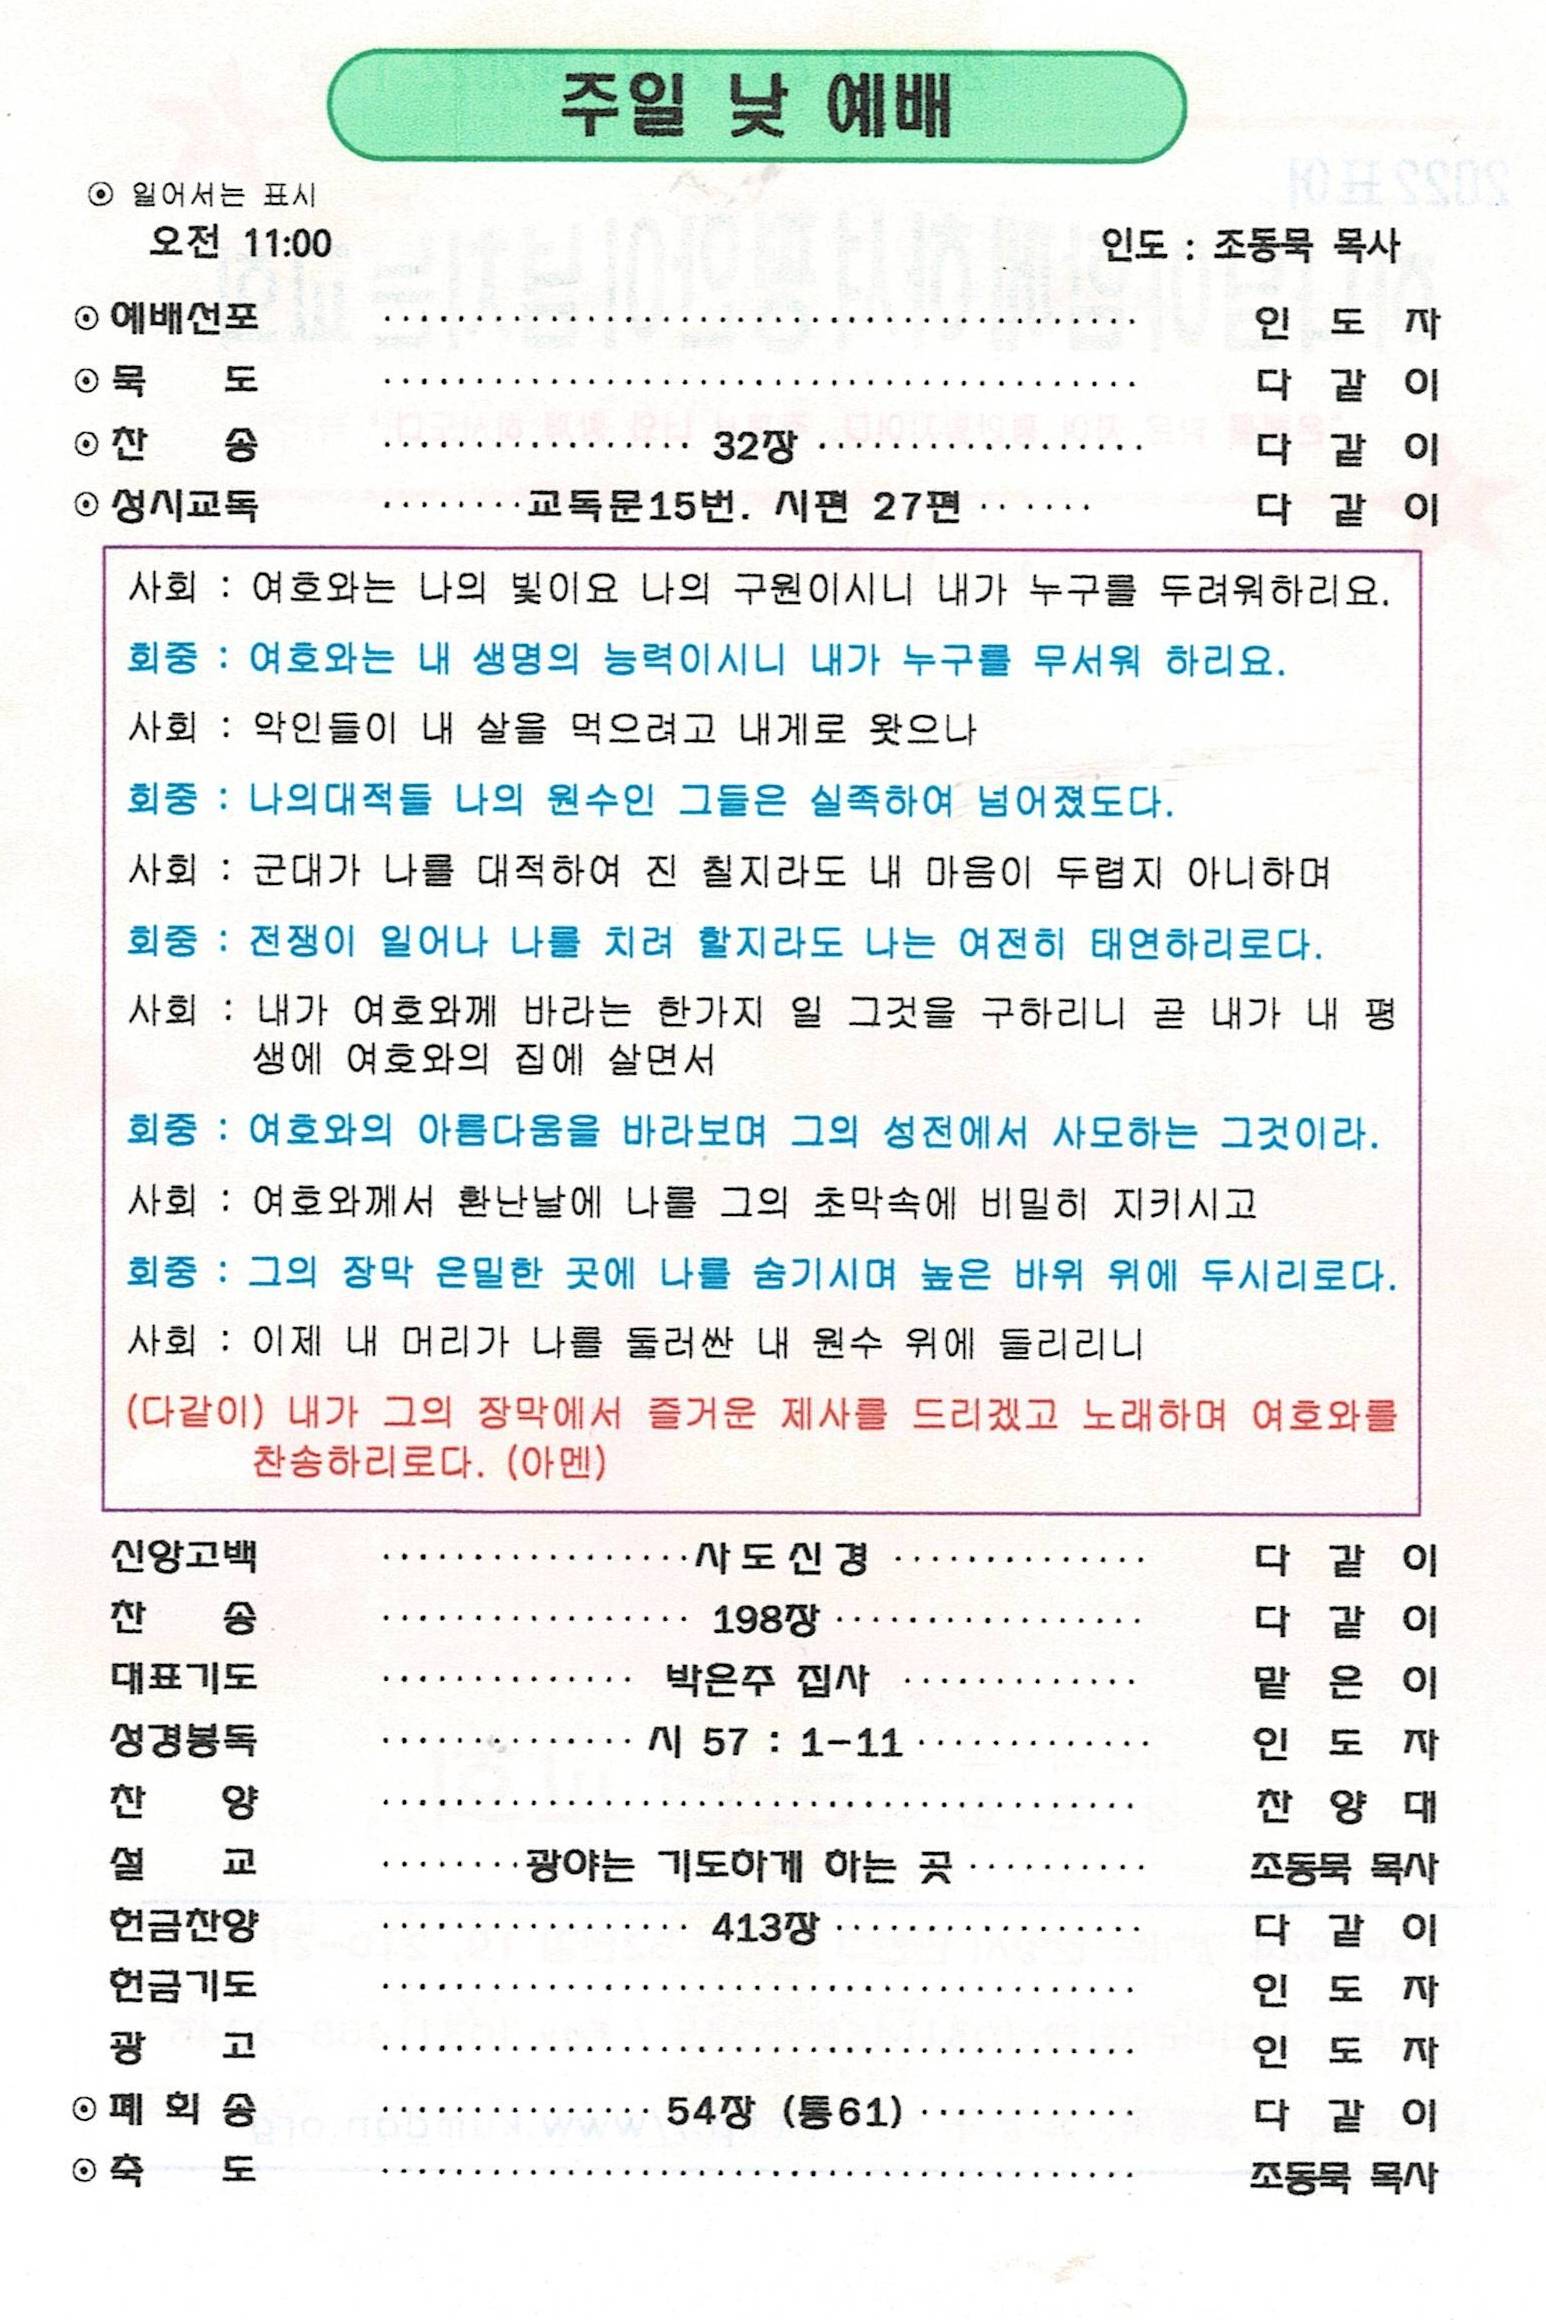 주일 낮 예배
⊙ 일어서는 표시
오전 11:00 인도 : 조동묵 목사
⊙ 예배선포 ········································ 인 도 자
⊙ 묵 도 ········································ 다 같 이
⊙ 찬 송 ················· 32장 ················· 다 같 이
⊙ 성시교독 ········교독문15번. 시편 27편 ·· ···· 다 같 이
사회 : 여호와는 나의 빛이요 나의 구원이시니 내가 누구를 두려워하리요.
회중 : 여호와는 내 생명의 능력이시니 내가 누구를 무서워 하리요.
사회 : 악인들이 내 살을 먹으려고 내게로 왔으나
회중 : 나의대적들 나의 원수인 그들은 실족하여 넘어졌도다.
사회 : 군대가 나를 대적하여 진 칠지라도 내 마음이 두렵지 아니하며
회중 : 전쟁이 일어나 나를 치려 할지라도 나는 여전히 태연하리로다.
사회 : 내가 여호와께 바라는 한가지 일 그것을 구하리니 곧 내가 내 평
생에 여호와의 집에 살면서
회중 : 여호와의 아름다움을 바라보며 그의 성전에서 사모하는 그것이라.
사회 : 여호와께서 환난날에 나를 그의 초막속에 비밀히 지키시고
회중 : 그의 장막 은밀한 곳에 나를 숨기시며 높은 바위 위에 두시리로다.
사회 : 이제 내 머리가 나를 둘러싼 내 원수 위에 들리리니
(다같이) 내가 그의 장막에서 즐거운 제사를 드리겠고 노래하며 여호와를
찬송하리로다. (아멘)
신앙고백 ·················사도신경 ·············· 다 같 이
찬 송 ················· 198장 ················· 다 같 이
대표기도 ·············· 박은주 집사 ············· 맡 은 이
성경봉독 ·············· 시 57 : 1-11 ············· 인 도 자
찬 양 ········································ 찬 양 대
설 교 ········광야는 기도하게 하는 곳 ·········· 조동묵 목사
헌금찬양 ················· 413장 ················· 다 같 이
헌금기도 ········································ 인 도 자
광 고 ········································ 인 도 자
⊙ 폐 회 송 ··············· 54장 (통61) ············ 다 같 이
⊙ 축 도 ········································ 조동묵 목사